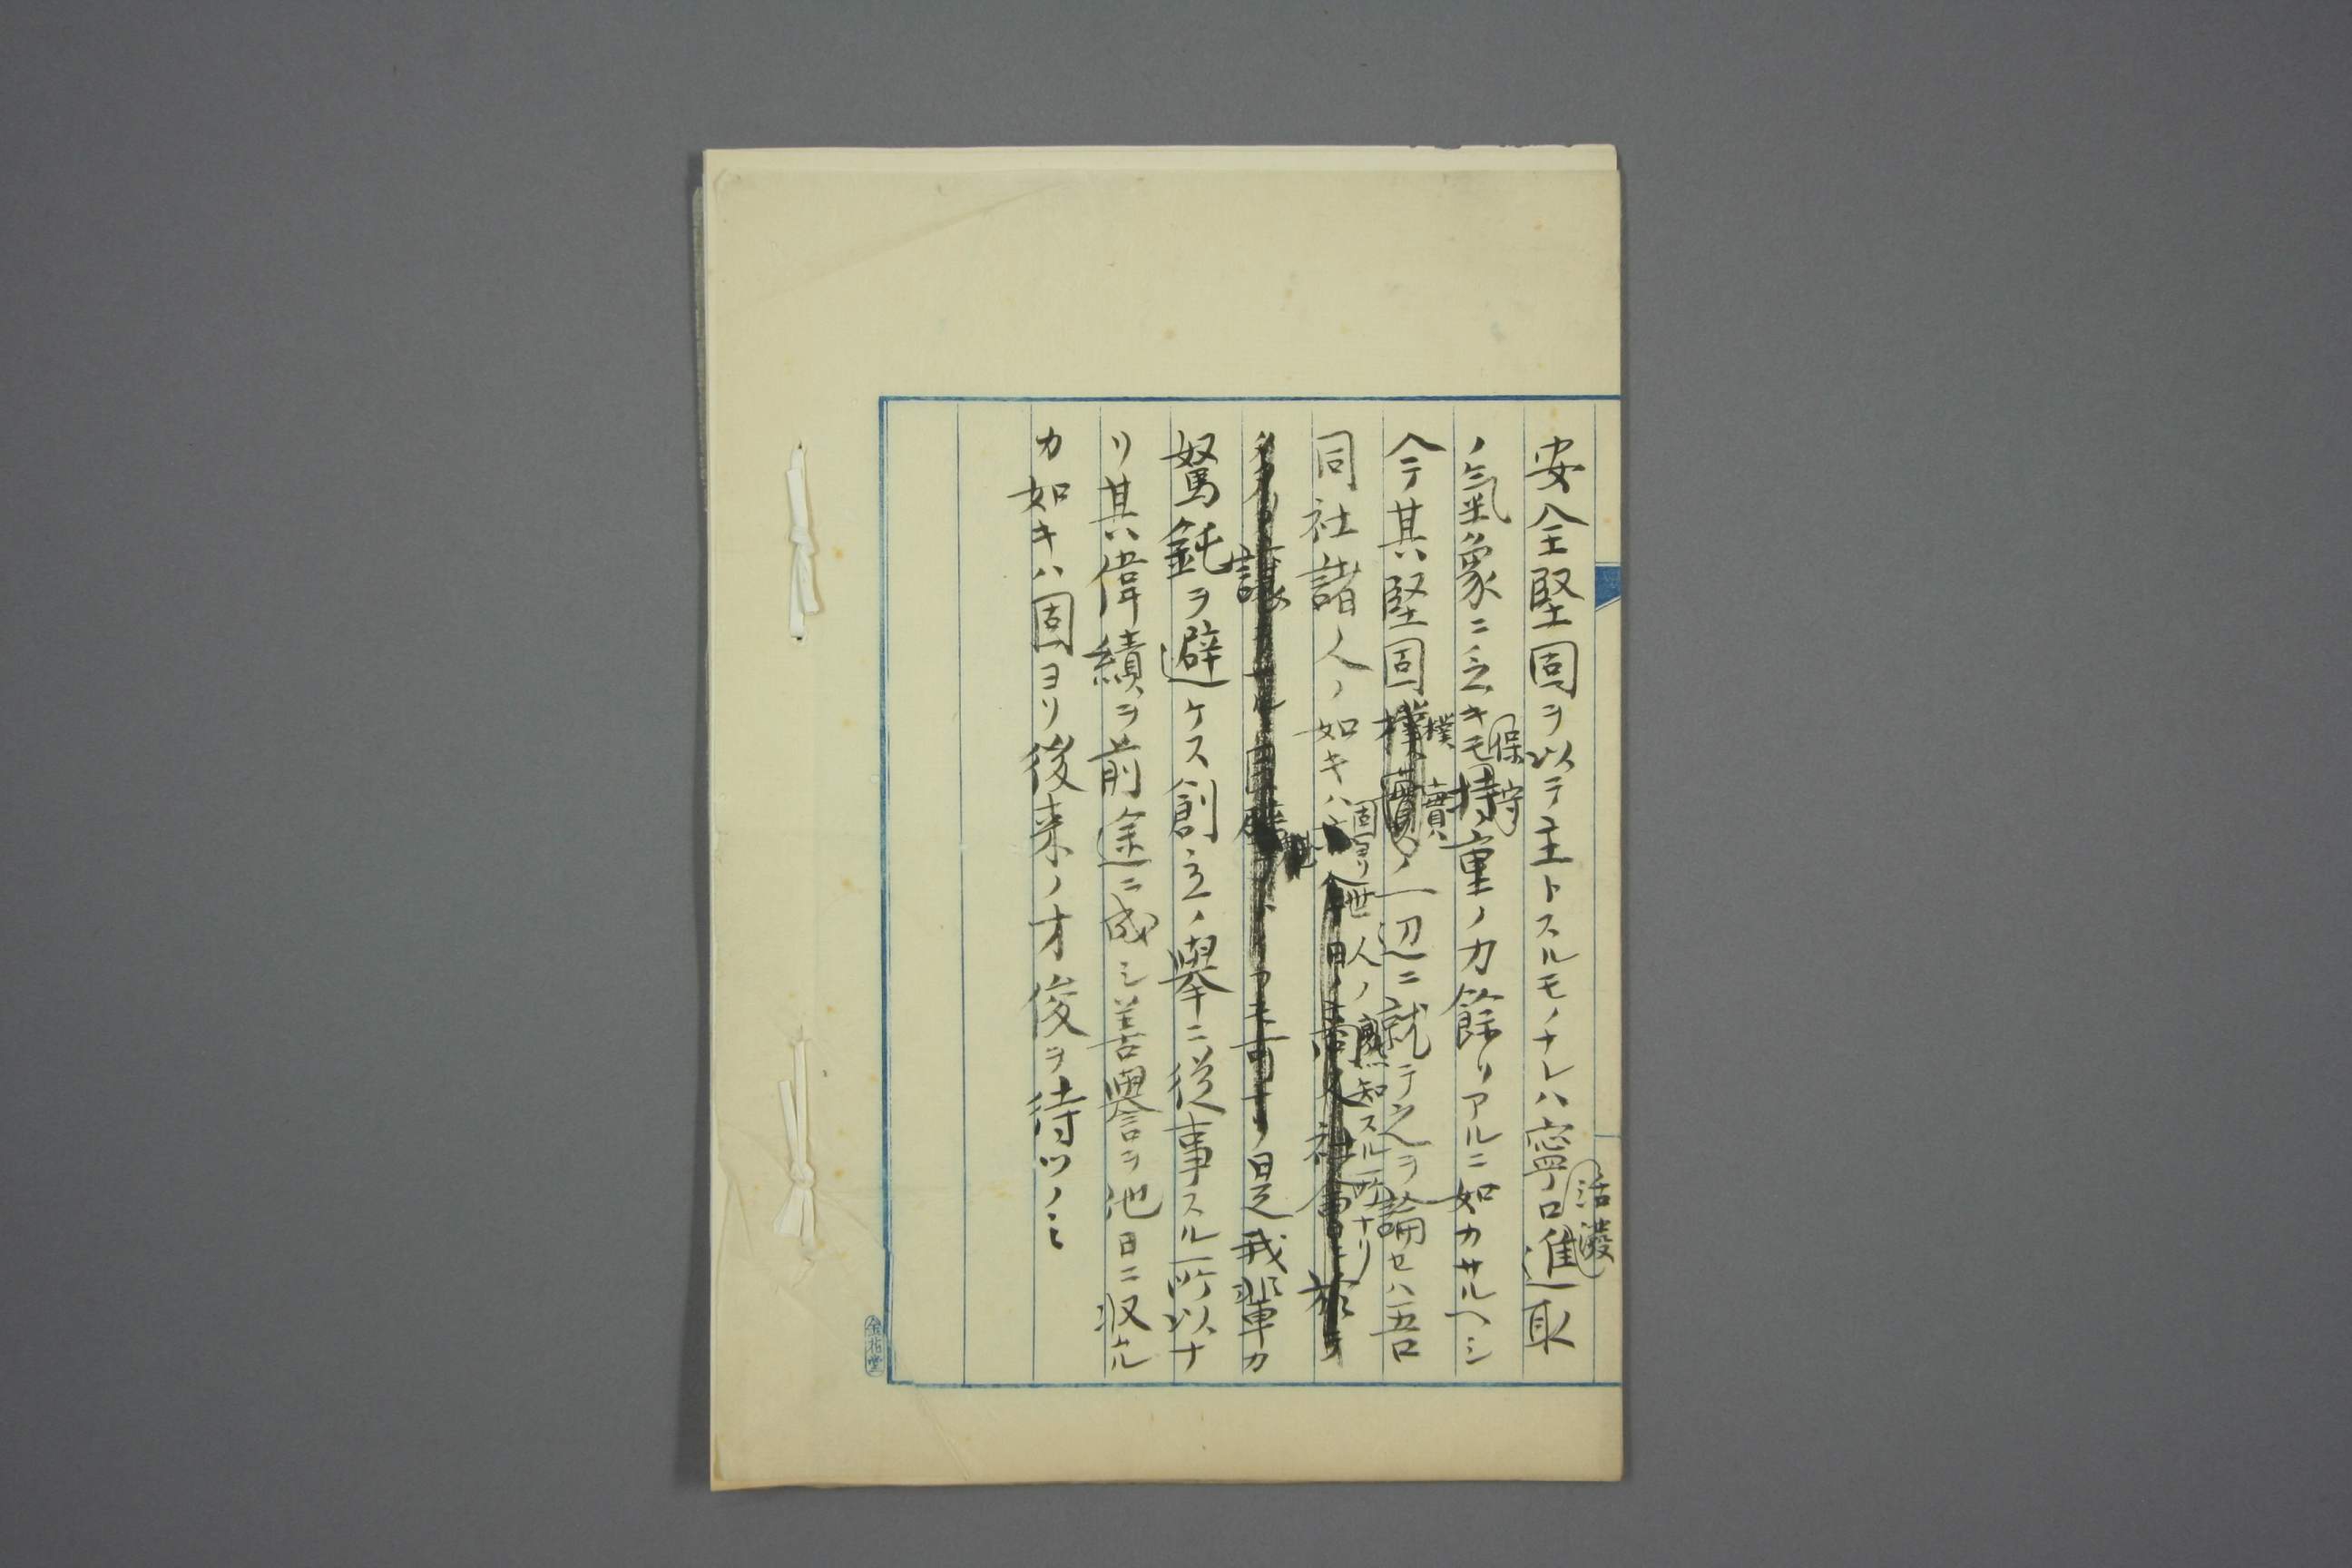 安全堅固ヲ以テ主トスルモノナレハ寧ロ進取
活潑
ノ氣象ニ乏キモ持重ノ力餘リアルニ如カサルヘシ
保守
今其堅固樸實ノ一辺ニ就テ之ヲ論セハ吾
樸實
同社諸人ノ如キハ今日
固ヨリ世人ノ熟知スル所ナリ
是我輩カ
駑鈍ヲ避ケス創立ノ舉ニ從事スル所以ナ
リ其偉績ヲ前途ニ成シ善譽ヲ他日ニ収ル
カ如キハ固ヨリ後来ノ才俊ヲ待ツノミ
金花堂